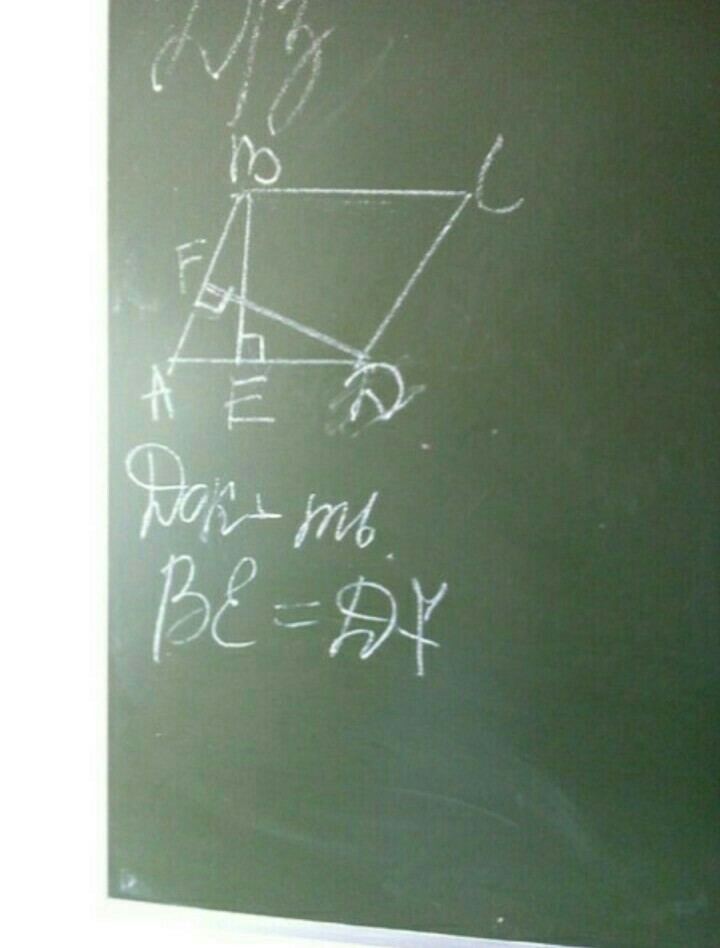 Д/з
B C
F
A E D
Док-ть
BE = DF